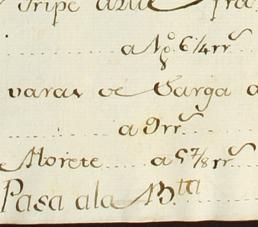 Tripe azul
a N.º 6 1/4 rr.s
varas de Sarga a
a 9 rr.s
Morete a 5 7/8 rr.s
Pasa ala B.ta